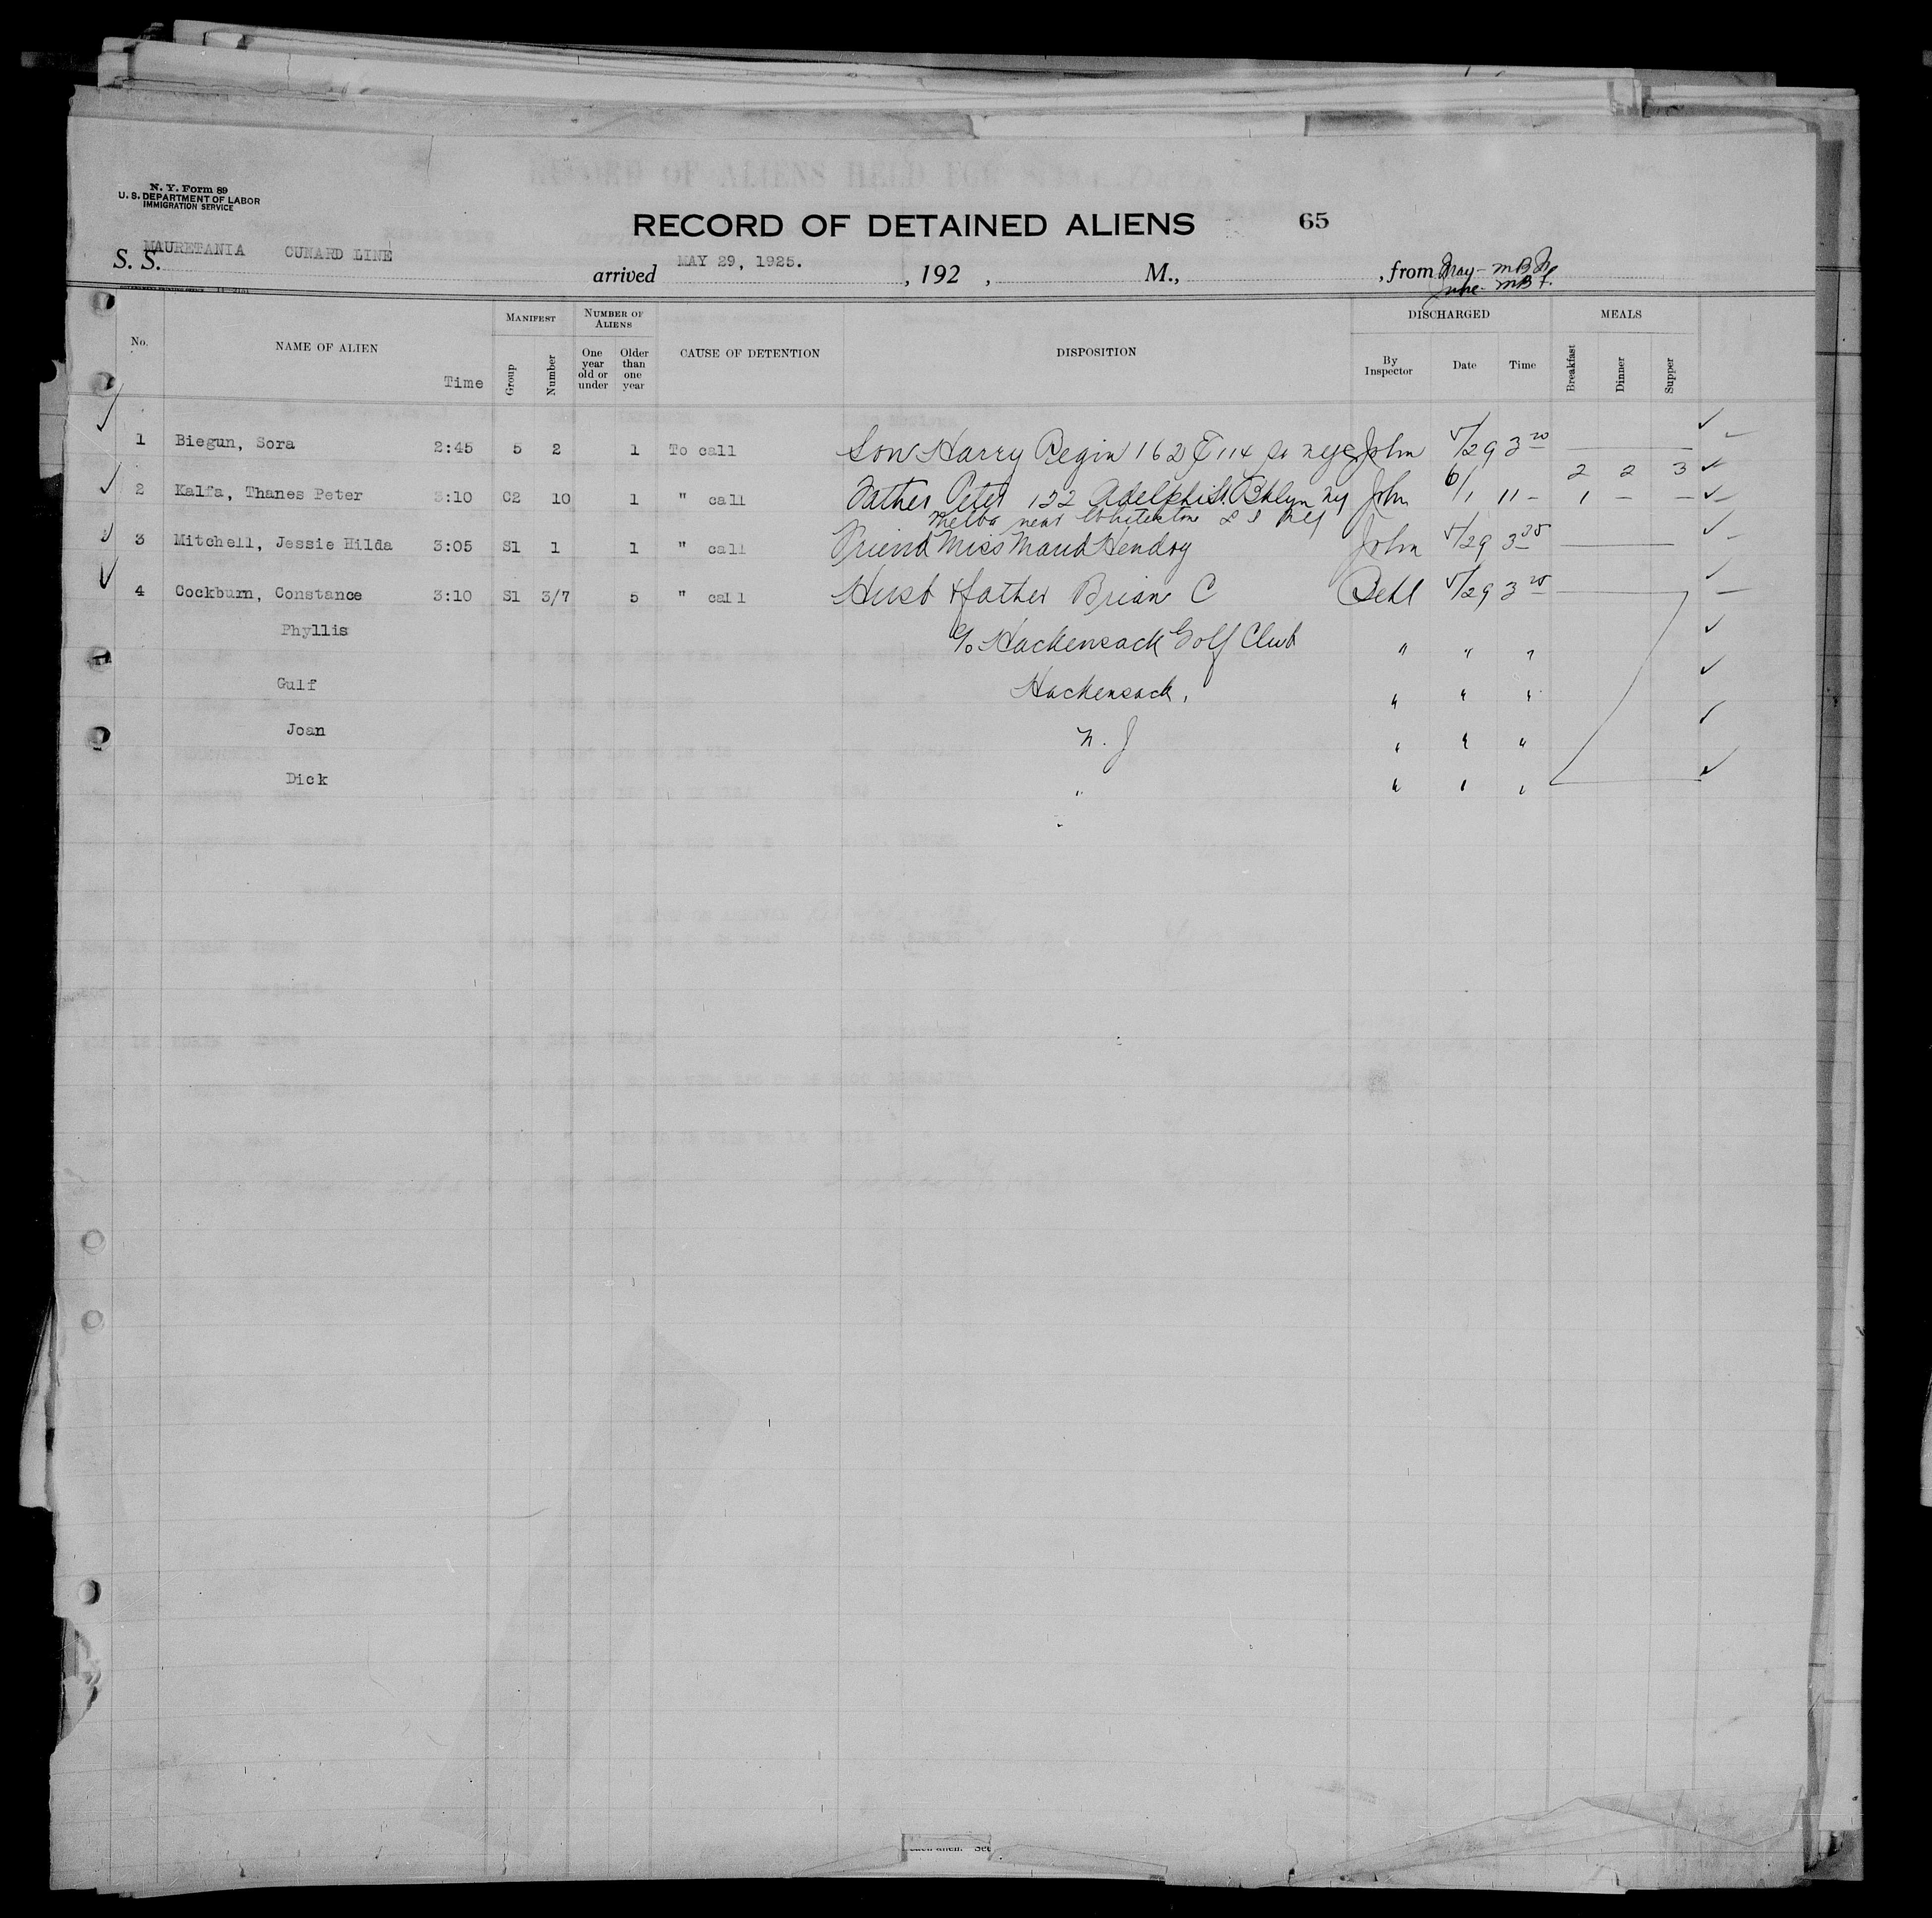 N. Y. Form 89
U. S. DEPARTMENT OF LABOR
IMMIGRATION SERVICE
RECORD OF DETAINED ALIENS 65
S. S. MAURETANIA CUNARD LINE arrived MAY 29, 1925. , 192 , M., , from May - MBF
June - MBF.
No. NAME OF ALIEN Time MANIFEST Group Number NUMBER OF ALIENS One year old or under Older than one year CAUSE OF DETENTION DISPOSITION DISCHARGED By Inspector Date Time MEALS Breakfast Dinner Supper
1 Biegun, Sora 2:45 5 2 1 To call Son Harry Regin 162 E 114 St nyc John 5/29 3 20
2 2 3
2 Kalfa, Thanes Peter 3:10 C2 10 1 " call Father Peter 122 Adelphi St. Bklyn ny John 6/1 11 - 1 - -
Melba near Whitestone L I NY
3 Mitchell, Jessie Hilda 3:05 S1 1 1 " call Friend Miss Maud Hendry John 5/29 3 35
4 Cockburn, Constance 3:10 S1 3/7 5 " call Husb & father Brian C 5/29 3 20
Phyllis c/o Hackensack Golf Club " " "
Gulf Hackensack, " " "
Joan N. J " " "
Dick " " " "